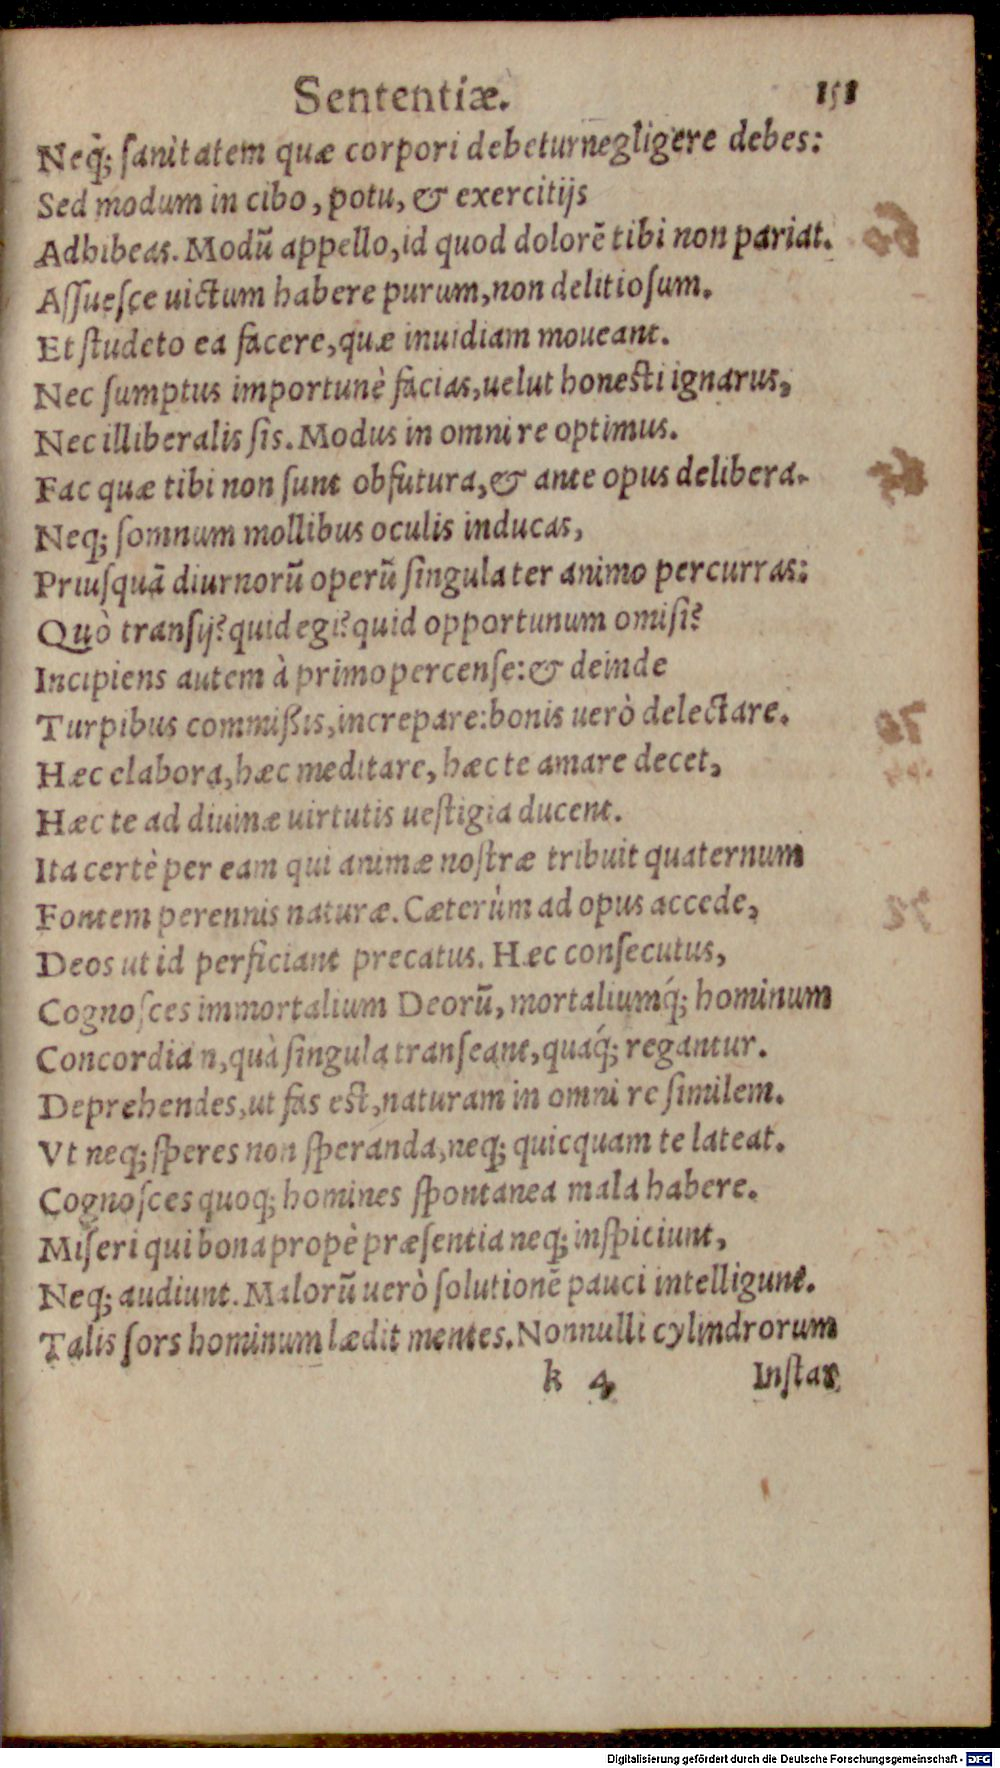 Sententiæ. 151
Neq́; ſanitatem quæ corpori debetur negligere debes:
Sed modum in cibo, potu, & exercitijs
Adhibeas. Modū appello, id quod dolorē tibi non pariat.
Aſſueſce uictum habere purum, non delitioſum.
Et ſtudeto ea facere, quæ inuidiam moueant.
Nec ſumptus importunè facias, uelut honesti ignarus,
Nec illiberalis ſis. Modus in omni re optimus.
Fac quæ tibi non ſunt obfutura, & ante opus delibera.
Neq; ſomnum mollibus oculis inducas,
Priuſquā diurnorū operū ſingula ter animo percurras:
Quò tranſij? quid egi? quid opportunum omiſi?
Incipiens autem à primo percenſe: & deinde
Turpibus commiſsis, increpare: bonis uerò delectare.
Hæc elabora, hæc meditare, hæc te amare decet,
Hæc te ad diuinæ uirtutis ueſtigia ducent.
Ita certè per eam qui animæ noſtræ tribuit quaternum
Fontem perennis naturæ. Cæterùm ad opus accede,
Deos ut id perficiant precatus. Hæc conſecutus,
Cognoſces immortalium Deorū, mortaliumq́; hominum
Concordian, quà ſingula tranſeant, quaq́; regantur.
Deprehendes, ut fas eſt, naturam in omni re ſimilem.
Vt neq; ſperes non ſperanda, neq; quicquam te lateat.
Cognoſces quoq; homines ſpontanea mala habere.
Miſeri qui bona propè præſentia neq; inſpiciunt,
Neq; audiunt. Malorū uerò ſolutionē pauci intelligunt.
Talis ſors hominum lædit mentes. Nonnulli cylindrorum
k 4 Inſtar
Digitalisierung gefördert durch die Deutsche Forschungsgemeinschaft - DFG